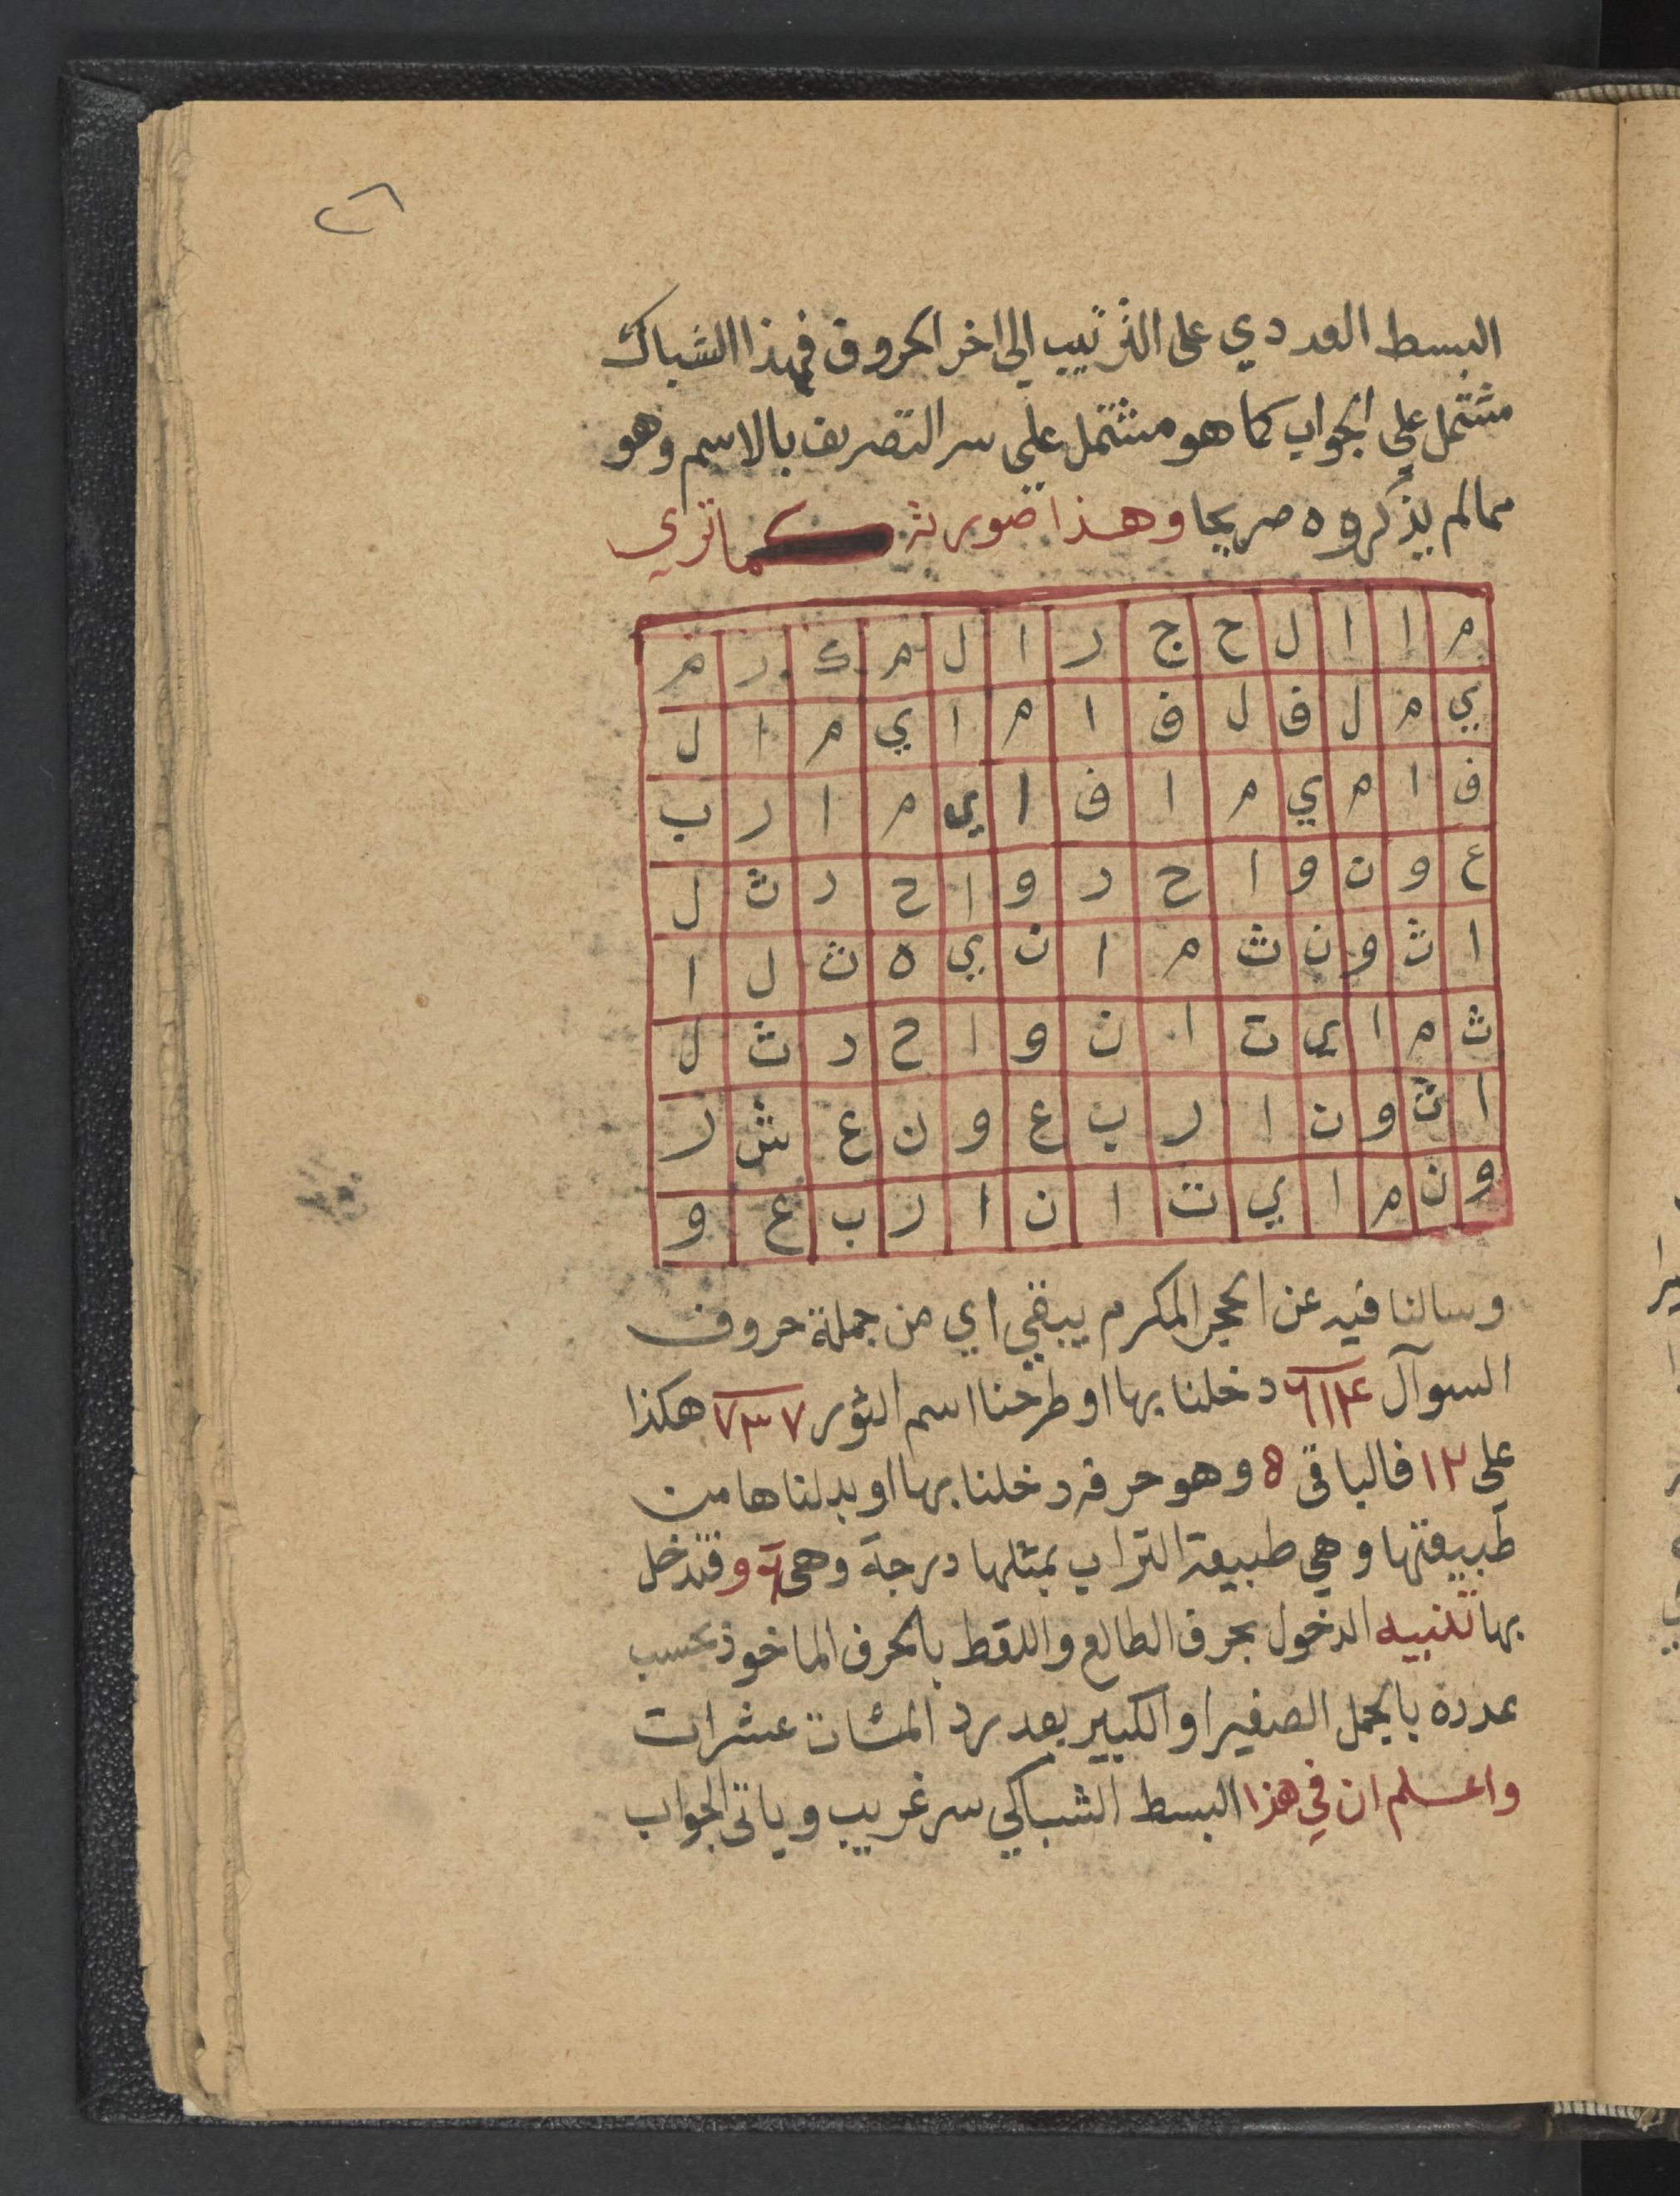 ٢٦
البسط العددي على الترتيب الى اخر الحروف فهذا الشباك
مشتمل علي الجواب كما هو مشتمل على سر التصريف بالاسم وهو
ممالم يذكروه صريحا وهذا صورته كما تري
م ا ا ل ح ج ر ا ل م ك ر م
ي م ل ف ل ف ا م ا ي م ا ل
ف ا م ي م ا ف ا ي م ا ر ب
ع و ن و ا ح د و ا ح د ث ل
ا ث و ن ث م ا ن ي ه ث ل ا
ث م ا ي ت ا ن و ا ح د ث ل
ا ث و ن ا ر ب ع و ن ع ش ر
و ن م ا ي ت ا ن ا ر ب ع و
وسالنا فيه عن الحجر المكرم يبقي اي من جملة حروف
السوآل ٦١٤ دخلنا بها او طرحنا اسم الثور ٧٣٧ هكذا
علي ١٢ فالباقى ٥ وهو حرفه دخلنا بها او بدلناها من
طبيعتها وهي طبيعة التراب بمثلها درجة وهي و فتدخل
بها تنبيه الدخول بحرف الطالع واللقط بالحرف الماخوذ بحسب
عدده بالجمل الصغير او الكبير بعد رد المئات عشرات
واعلم ان في هذا البسط الشباكي سر غريب وياتى الجواب